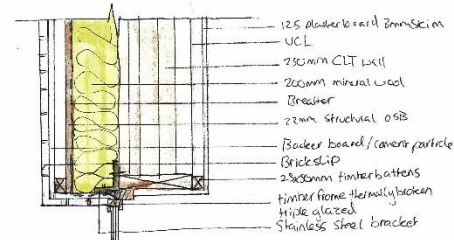 12.5 plasterboard 3mm skim
VCL
250mm CLT wall
200mm mineral wool
Breather
22mm structural OSB
Backer board/cement particle
Brickslip
25x50mm timber battens
timber frame thermally broken
triple glazed
Stainless steel bracket